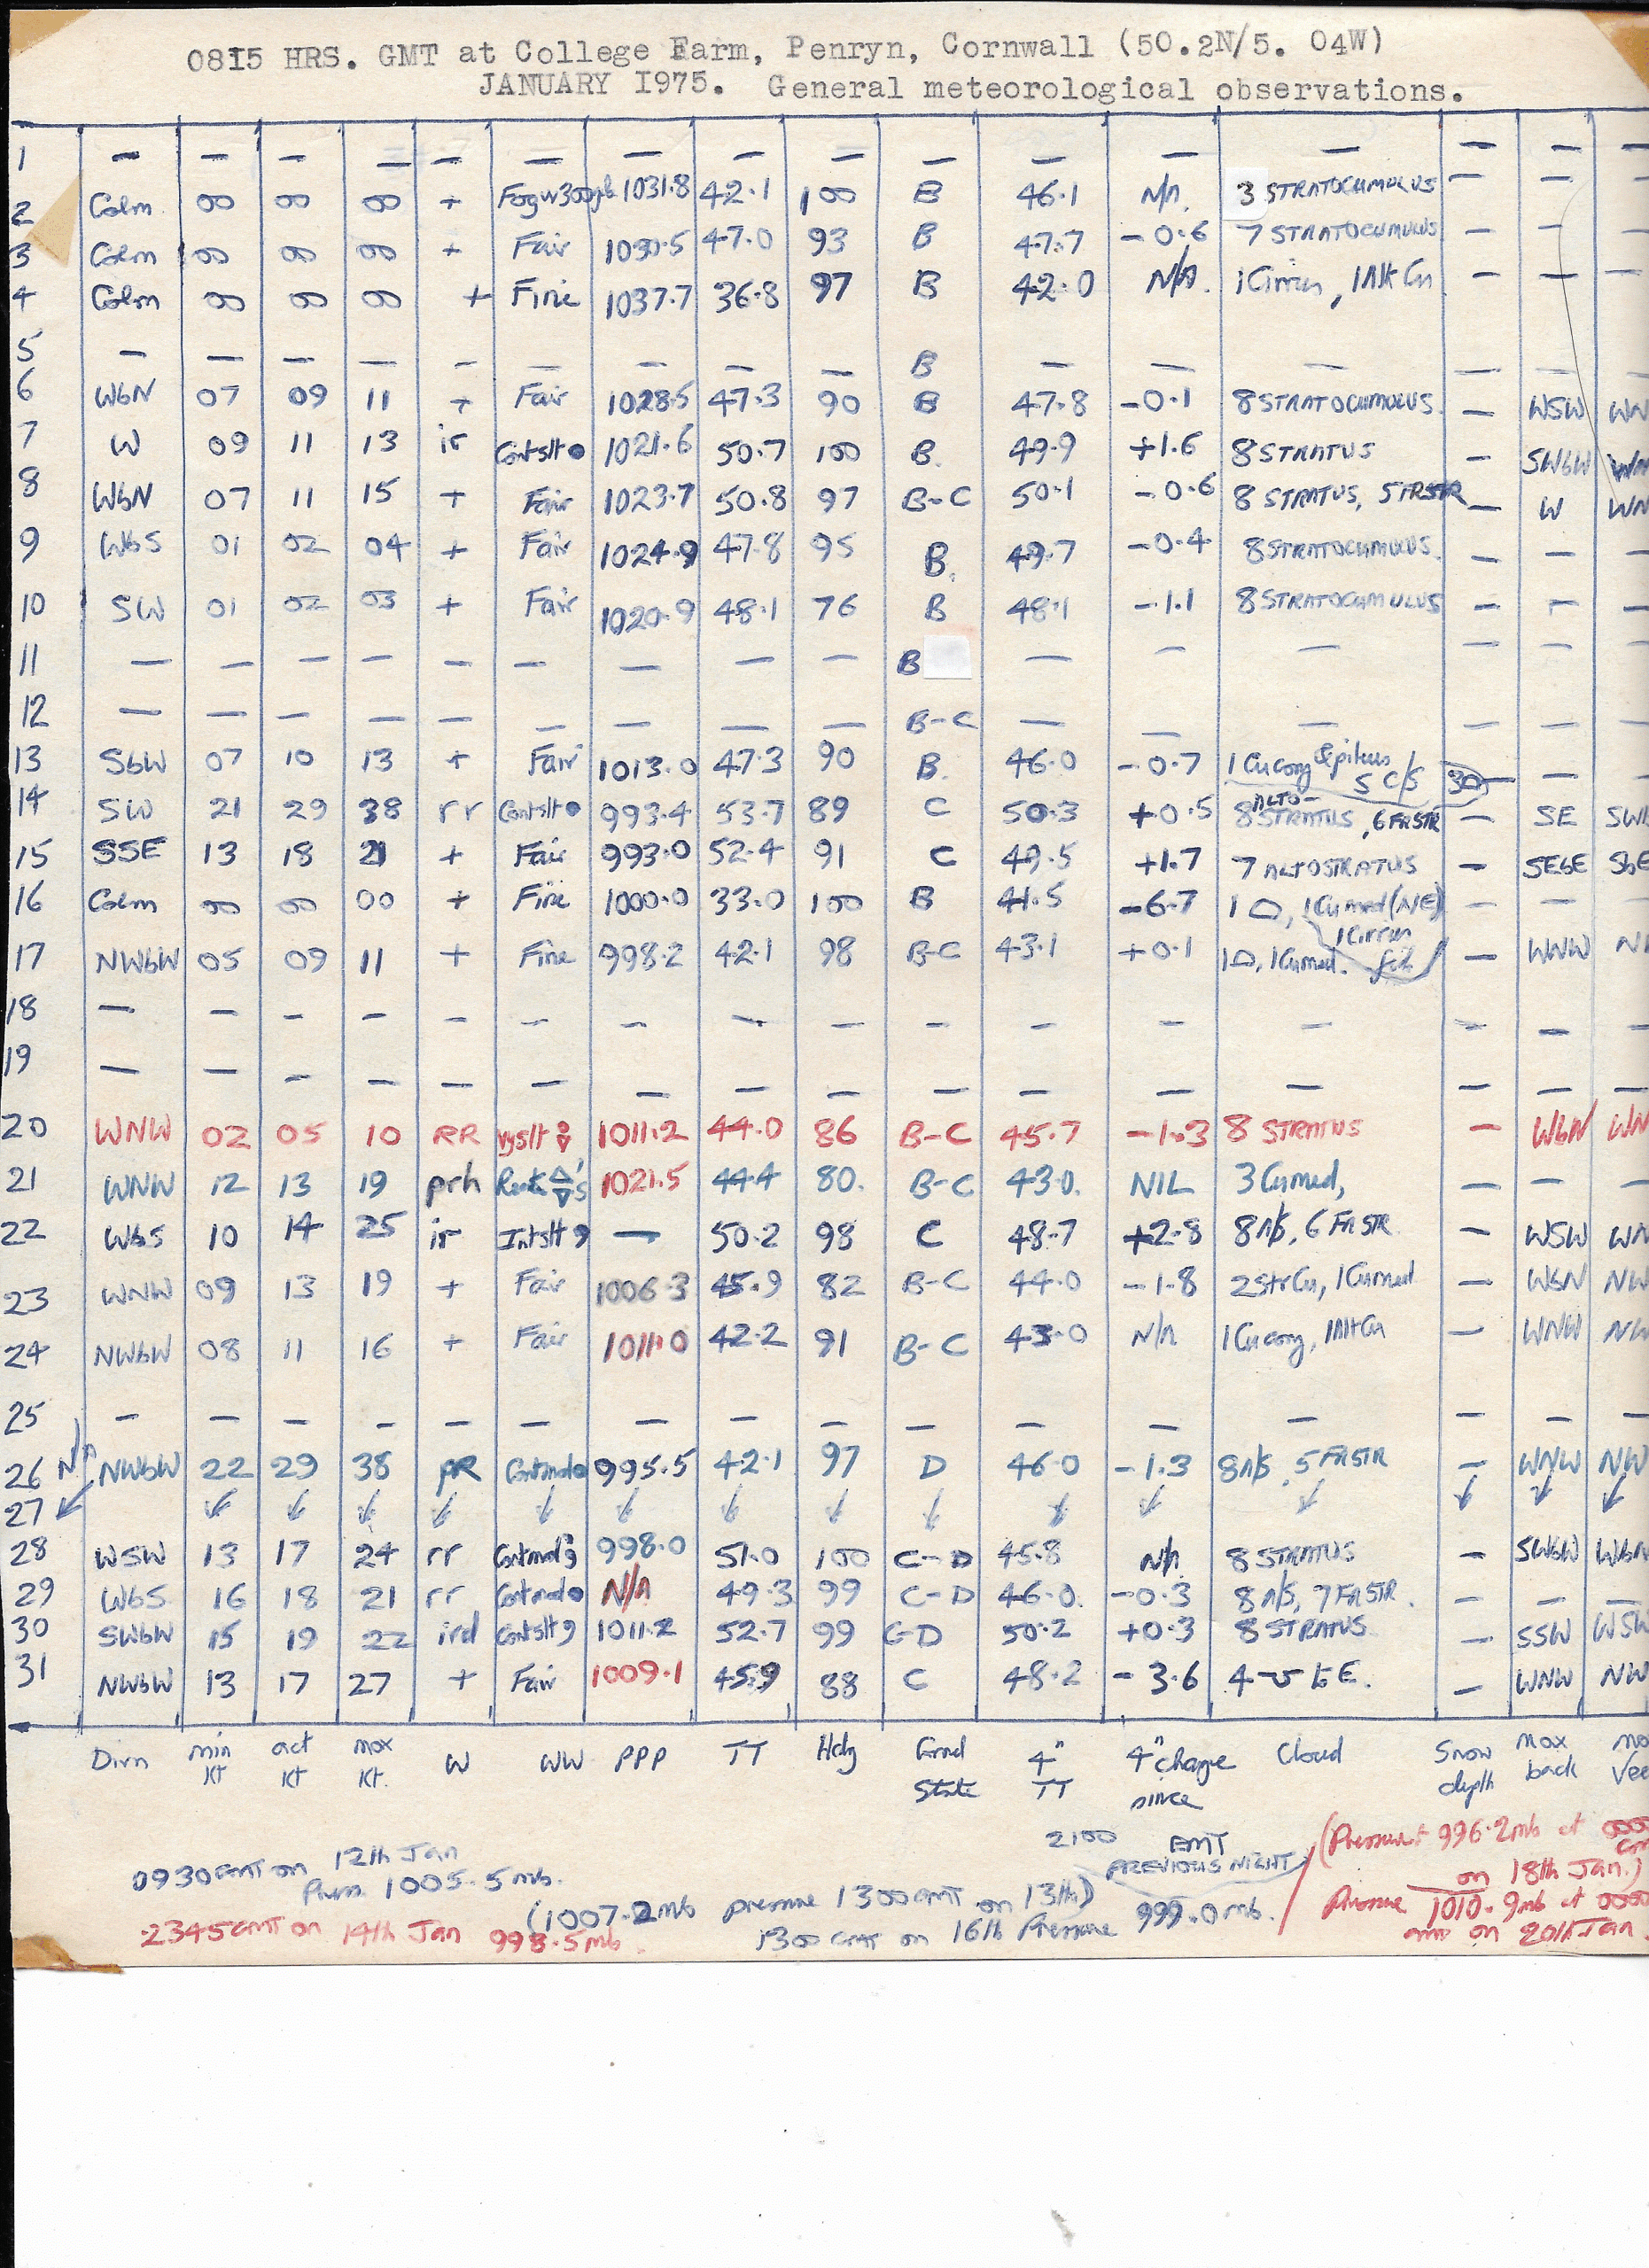 0815 HRS. GMT at College Farm, Penryn, Cornwall (50.2N/5. 04W)
JANUARY 1975. General meteorological observations.
1 — — — — — — — — — — — — — — — —
2 Calm 00 00 00 + 1031.8 42.1 100 B 46.1 N/A. 3 STRATOCUMULUS — — —
3 Calm 00 00 00 + Fair 1030.5 47.0 93 B 47.7 -0.6 7 STRATOCUMULUS — — —
4 Calm 00 00 00 + Fine 1037.7 36.8 97 B 42.0 N/A. 1 Cirrus, 1 Alt Cu — — —
5 — — — — — — — — — B — — — — — —
6 WbN 07 09 11 + Fair 1028.5 47.3 90 B 47.8 -0.1 8 STRATOCUMULUS. — WSW WN
7 W 09 11 13 ir Contslt ● 1021.6 50.7 100 B. 49.9 +1.6 8 STRATUS — SWbW WN
8 WbN 07 11 15 + Fair 1023.7 50.8 97 B-C 50.1 -0.6 8 STRATUS, 5 FRSTR — W WN
9 WbS 01 02 04 + Fair 1024.9 47.8 95 B. 49.7 -0.4 8 STRATOCUMULUS. — — —
10 SW 01 02 03 + Fair 1020.9 48.1 76 B 48.1 -1.1 8 STRATOCUMULUS — — —
11 — — — — — — — — — B — — — — — —
12 — — — — — — — — — B-C — — — — — —
13 SbW 07 10 13 + Fair 1013.0 47.3 90 B. 46.0 -0.7 1 Cu cong & pileus 5 C/S 30 — — —
14 SW 21 29 38 rr Contslt ● 993.4 53.7 89 C 50.3 +0.5 8 ALTO-STRATUS, 6 FRSTR — SE SWb
15 SSE 13 18 21 + Fair 993.0 52.4 91 C 49.5 +1.7 7 ALTOSTRATUS — SEbE SbE
16 Calm 00 00 00 + Fine 1000.0 33.0 100 B 41.5 -6.7 1 △, 1 Cu med (NE) — — —
17 NWbW 05 09 11 + Fine 998.2 42.1 98 B-C 43.1 +0.1 1 △, 1 Cu med. 1 Cirrus fib — WNW N
18 — — — — — — — — — — — — — — — —
19 — — — — — — — — — — — — — — — —
20 WNW 02 05 10 RR vyslt 1011.2 44.0 86 B-C 45.7 -1.3 8 STRATUS — WbN WN
21 WNW 12 13 19 prh 1021.5 44.4 80. B-C 43.0. NIL 3 Cu med, — — —
22 WbS 10 14 25 ir Intslt 9 — 50.2 98 C 48.7 +2.8 8 N/S, 6 FRSTR — WSW WN
23 WNW 09 13 19 + Fair 1006.3 45.9 82 B-C 44.0 -1.8 2 StrCu, 1 Cu med — WbN NW
24 NWbW 08 11 16 + Fair 1011.0 42.2 91 B-C 43.0 N/A 1 Cu cong, 1 Alt Cu — WNW NW
25 — — — — — — — — — — — — — — — —
26 N/A NWbW 22 29 38 pR Contmod ● 995.5 42.1 97 D 46.0 -1.3 8 N/S, 5 FRSTR — WNW NW
27 ↙ ↙ ↓ ↓ ↓ ↓ ↓ ↓ ↓ ↓ ↓ ↓ ↓ ↓ ↓ ↓
28 WSW 13 17 24 rr Contmod 9 998.0 51.0 100 C-D 45.8 N/A 8 STRATUS — SWbW WbN
29 WbS 16 18 21 rr Contmod ● N/A 49.3 99 C-D 46.0. -0.3 8 N/S, 7 FRSTR. — — —
30 SWbW 15 19 22 ird Contslt 9 1011.2 52.7 99 C-D 50.2 +0.3 8 STRATUS — SSW WSW
31 NWbW 13 17 27 + Fair 1009.1 45.9 88 C 48.2 -3.6 4 E. — WNW NW
Dirn min Kt act Kt max Kt. W WW PPP TT Hdy Grnd State 4" TT 4" change since Cloud Snow depth max back max Vee
2100 GMT PREVIOUS NIGHT
0930 GMT on 12th Jan
Press. 1005.5mb.
(1007.2mb pressure 1300 GMT on 13th)
2345 GMT on 14th Jan 998.5mb.
1300 GMT on 16th Pressure 999.0mb.
(Pressure 996.2mb at 0000 GM
on 18th Jan.)
Pressure 1010.9mb at 0000
GMT on 20th Jan.